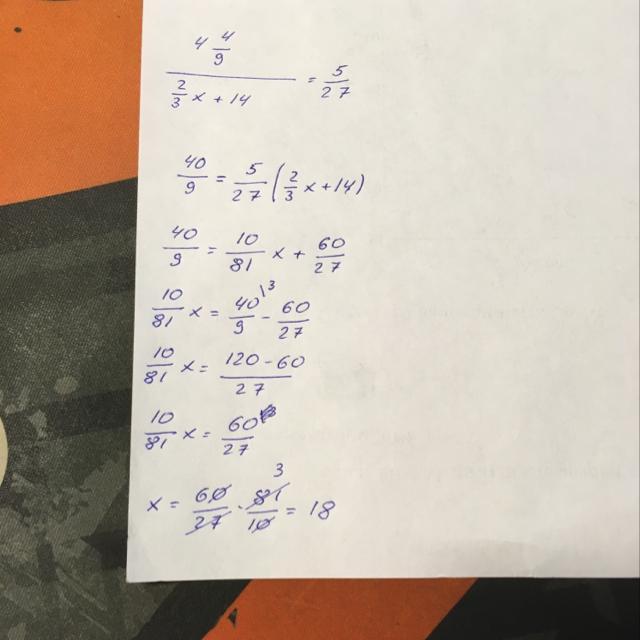 4 4/9 / (2/3 x + 14) = 5/27
40/9 = 5/27 (2/3 x + 14)
40/9 = 10/81 x + 60/27
10/81 x = 40/9 \3 - 60/27
10/81 x = (120 - 60)/27
10/81 x = 60/27
x = 60/27 · 81/10 3 = 18